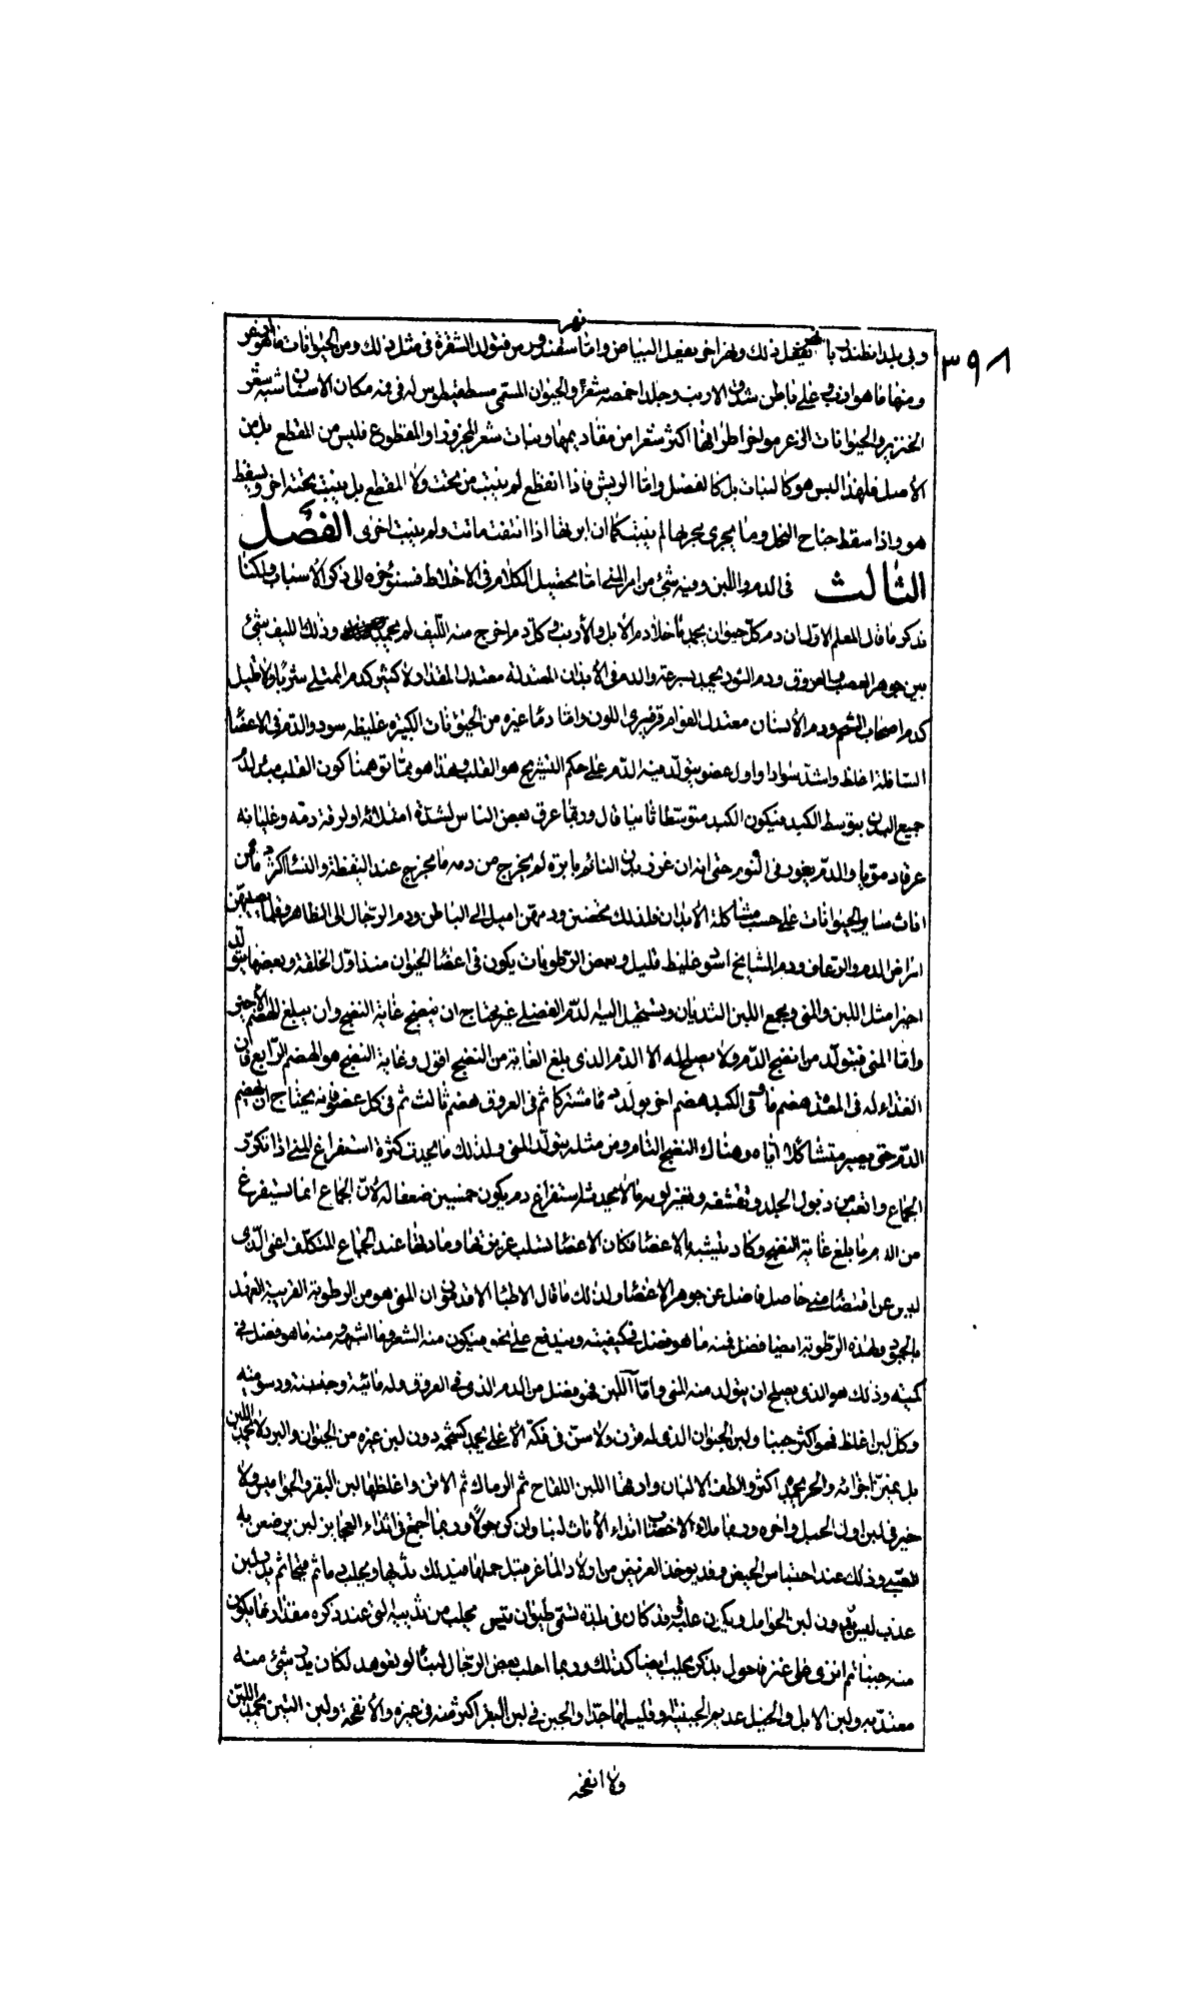 ٣٩٨
نهر
وفي بلد انطندريا يفعل ذلك ونهر اخر يفعل البياض واما سقمندروس فتولد الشقرة في مثل ذلك ومن الحيوانات ما هو ازعر
ومنها ما هو ازب وعلى باطن شدق الارنب وجلد اخمصه شعر والحيوان المسمى مسطقيطوس له في فمه مكان الاسنان شبه شعر
الخنزير والحيوانات الزعر مواخر اطرافها اكثر شعرا من مقاديمها ونبات شعر المجزوز او المقطوع فليس من المقطع بل من
الاصل فلهذا ليس هو كالنبات بل كالفضل واما الريش فاذا انقطع لم ينبت من تحت ولا المقطع بل ينبت تحته اخر ويسقط
هو واذا سقط جناح النحل وما يجري مجريها لم ينبت كما ان ابرتها اذا انتفت ماتت ولم ينبت اخرى الفصل
الثالث في الدم واللبن وفيه شئ من امر المني اما تحصيل الكلام في الاخلاط فسنؤخره الى ذكر الاسباب ولكنا
نذكر ما قال المعلم الاول ان دم كل حيوان يجمد ما خلا دم الايل والارنب وكل دم اخرج منه الليف لم يجمد وذلك لليف شئ
بين جوهر العصب والعروق ودم الثور يجمد بسرعة والدم في الابدان المعتدلة معتدل المقدار لا كثير كدم الممتلي شربا ولا قليل
كدم اصحاب الشحم ودم الانسان معتدل القوام قرفيري اللون واما دماء غيره من الحيوانات الكبيرة غليظه سود والدم في الاعضاء
السافلة اغلظ واشد سوادا واول عضو يتولد فيه الدم على حكم التشريح هو القلب وهذا هو مما توهمنا كون القلب مبدء لدم
جميع البدن بتوسط الكبد فيكون الكبد متوسطا ثانيا قال وربما عرق بعض الناس لشدة امتلائه او لرقة دمه وغليانه
عرقا دمويا والدم يغور في النوم حتى انه ان غرز بدن النائم بابرة لم يخرج من دمه ما يخرج عند اليقظة والنساء اكثر دما من
اناث ساير الحيوانات على حسب مشاكلة الابدان فلذلك يحضن ودمهن اميل الى الباطن ودم الرجال الى الظاهر وقلما يصيبهن
امراض الدم والرعاف ودم المشايخ اسود غليظ قليل وبعض الرطوبات يكون في اعضاء الحيوان منذ اول الخلقة وبعضها يتولد
اخيرا مثل اللبن والمني ومجمع اللبن الثديان ويستحيل اليه الدم الفضلي غير محتاج ان ينضج غاية النضج وان يبلغ الهضم الاخير
واما المني فيتولد من انضج الدم ولا يصلح له الا الدم الذي بلغ الغاية من النضج اقول وغاية النضج هو الهضم الرابع فان
الغذاء له في المعدة هضم ما وفي الكبد هضم اخر يولد دما مشتركا ثم في العروق هضم ثالث ثم في كل عضو فانه يحتاج ان يهضم
الدم حتى يصير متشاكلا اياه وهناك النضج التام ومن مثله يتولد المني ولذلك ما يحدث كثرة استفراغ المني اذا تكرر
الجماع واتعب من ذبول الجلد وتقشفه وتغير لونه ما لا يحدثه استفراغ دم يكون خمسين ضعفا له لان الجماع انما يستفرغ
من الدم ما بلغ غاية النضج وكاد يتشبه بالاعضاء فكان الاعضاء تسلب عزيزتها ومادتها عند الجماع المتكلف اعني الذي
ليس عن اقتضاء مني حاصل فاضل عن جوهر الاعضاء ولذلك ما قال الاطباء الاقدمون ان المني هو من الرطوبة القريبة العهد
بالجمود ولهذه الرطوبة ايضا فضل فمنه ما هو فضل في كيفيته ويندفع على نحو فيكون منه الشعر وما اشبهه ومنه ما هو فضل في
كميته وذلك هو الذي يصلح ان يتولد منه المني واما اللبن فهو فضل من الدم الذي في العروق وله مائية وجبنية ودسومة
وكل لبن اغلظ فهو اكثر جبنا ولبن الحيوان الذي له قرن ولا سن في فكه الاعلى يجمد كشحمه دون لبن غيره من الحيوان والبرد لا يجمد اللبن
بل يميز اجزائه والحر يجمد اكثر والطف الالبان وارقها اللبن اللقاح ثم الرماك ثم الاتن واغلظها لبن البقر والجواميس ولا
خير في لبن اول الحبل واخره وربما ملاء الاخصاب اثداء الاناث لبنا وان كن حولا وربما اجتمع في اثداء العجايز لبن يرضعن به
الصبي وذلك عند احتباس الحيض وقد يوخذ العريض من اولاد الماعز قبل حملها فيدلك ثديها ويحلب دما ثم قيحا ثم يدر لبن
عذب ليس بدون لبن الحوامل ويكون علب وقد كان في بلدة تسمى طيوان تيس يحلب من ثدييه التي عند ذكره مقدار ما يكون
منه جبنا ثم انزى على عنز فاحول بذكر يحلب ايضا كذلك وربما احلب بعض الرجال لبنا لو تعوهد لكان يدر شئ منه
معتد به ولبن الابل والخيل عديم الجبنية او قليلها جدا والجبن في لبن البقر اكثر منه في غيره والانفحة ولبن التين يجمد اللبن
ولا انفحة